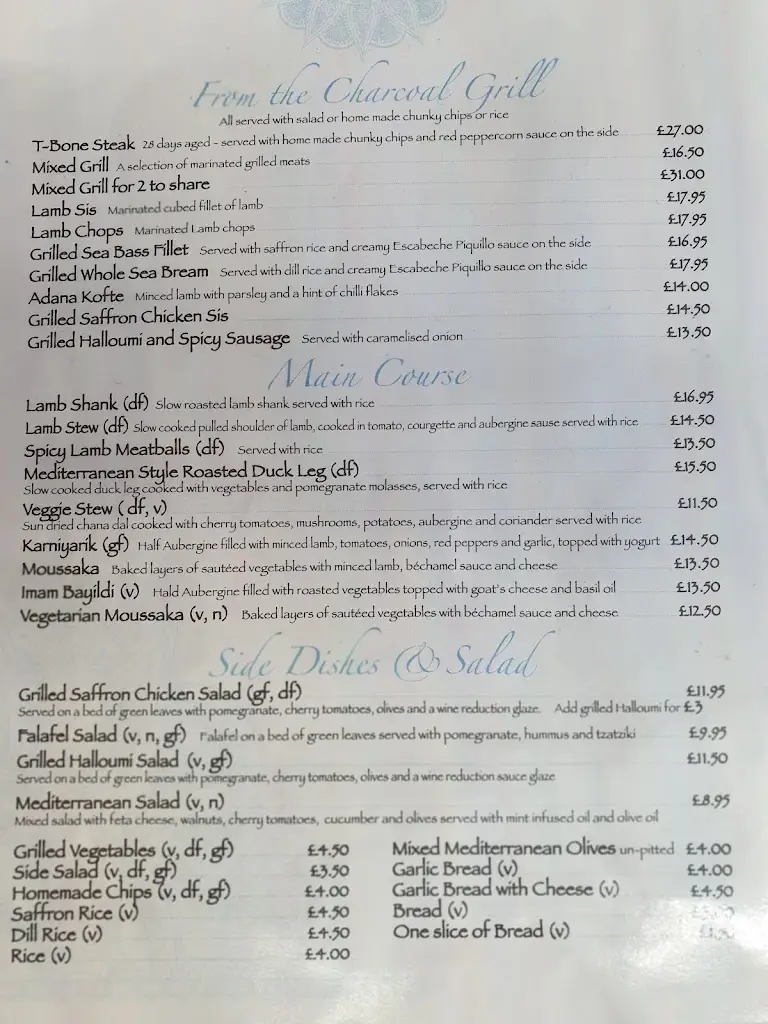 From the Charcoal Grill
All served with salad or home made chunky chips or rice
T-Bone Steak 28 days aged - served with home made chunky chips and red peppercorn sauce on the side £27.00
Mixed Grill A selection of marinated grilled meats £16.50
Mixed Grill for 2 to share £31.00
Lamb Sis Marinated cubed fillet of lamb £17.95
Lamb Chops Marinated Lamb chops £17.95
Grilled Sea Bass Fillet Served with saffron rice and creamy Escabeche Piquillo sauce on the side £16.95
Grilled Whole Sea Bream Served with dill rice and creamy Escabeche Piquillo sauce on the side £17.95
Adana Kofte Minced lamb with parsley and a hint of chilli flakes £14.00
Grilled Saffron Chicken Sis £14.50
Grilled Halloumi and Spicy Sausage Served with caramelised onion £13.50
Main Course
Lamb Shank (df) Slow roasted lamb shank served with rice £16.95
Lamb Stew (df) Slow cooked pulled shoulder of lamb, cooked in tomato, courgette and aubergine sause served with rice £14.50
Spicy Lamb Meatballs (df) Served with rice £13.50
Mediterranean Style Roasted Duck Leg (df) £15.50
Slow cooked duck leg cooked with vegetables and pomegranate molasses, served with rice
Veggie Stew ( df, v) £11.50
Sun dried chana dal cooked with cherry tomatoes, mushrooms, potatoes, aubergine and coriander served with rice
Karniyarik (gf) Half Aubergine filled with minced lamb, tomatoes, onions, red peppers and garlic, topped with yogurt £14.50
Moussaka Baked layers of sautéed vegetables with minced lamb, béchamel sauce and cheese £13.50
Imam Bayildi (v) Hald Aubergine filled with roasted vegetables topped with goat's cheese and basil oil £13.50
Vegetarian Moussaka (v, n) Baked layers of sautéed vegetables with béchamel sauce and cheese £12.50
Side Dishes & Salad
Grilled Saffron Chicken Salad (gf, df) £11.95
Served on a bed of green leaves with pomegranate, cherry tomatoes, olives and a wine reduction glaze. Add grilled Halloumi for £3
Falafel Salad (v, n, gf) Falafel on a bed of green leaves served with pomegranate, hummus and tzatziki £9.95
Grilled Halloumi Salad (v, gf) £11.50
Served on a bed of green leaves with pomegranate, cherry tomatoes, olives and a wine reduction sauce glaze
Mediterranean Salad (v, n) £8.95
Mixed salad with feta cheese, walnuts, cherry tomatoes, cucumber and olives served with mint infused oil and olive oil
Grilled Vegetables (v, df, gf) £4.50
Side Salad (v, df, gf) £3.50
Homemade Chips (v, df, gf) £4.00
Saffron Rice (v) £4.50
Dill Rice (v) £4.50
Rice (v) £4.00
Mixed Mediterranean Olives un-pitted £4.00
Garlic Bread (v) £4.00
Garlic Bread with Cheese (v) £4.50
Bread (v)
One slice of Bread (v)